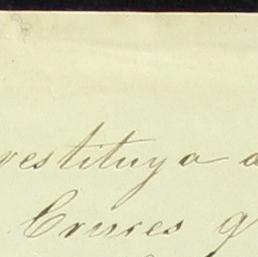 restituya a
Cruces q